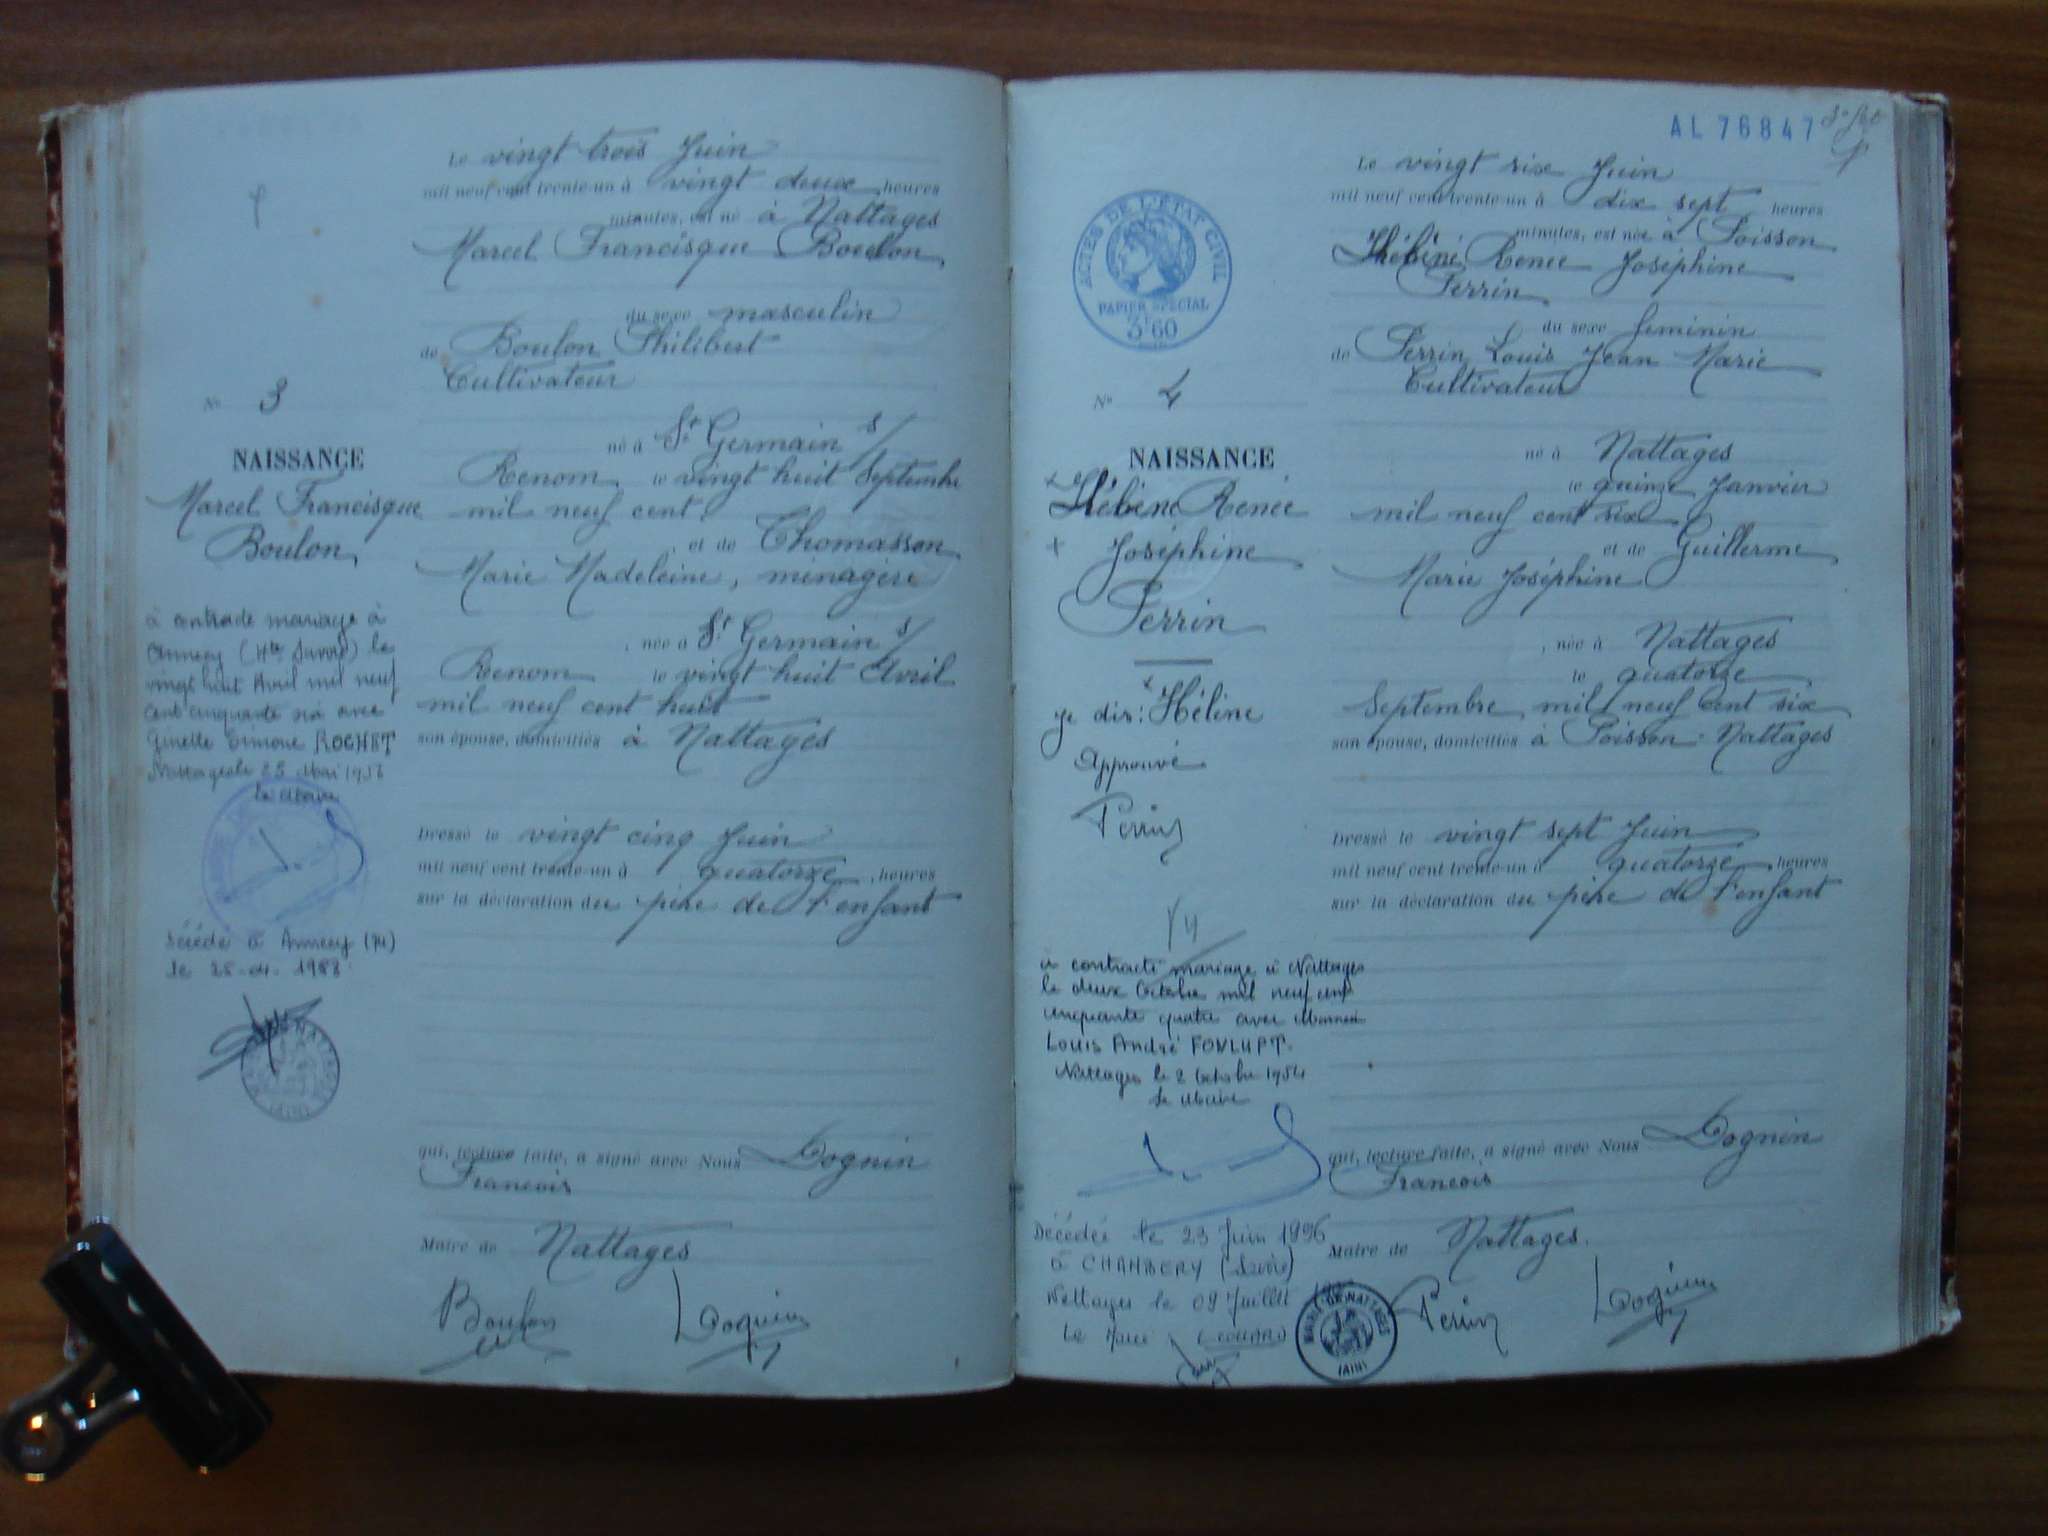 Le vingt trois Juin
mil neuf cent trente-un à vingt deux heures
minutes, est né à Nattages
Marcel Francisque Boulon
du sexe masculin
de Boulon Philibert
Cultivateur
né à St Germain s/
Renom, le vingt huit Septembre
mil neuf cent.
et de Thomasson
Marie Madeleine, ménagère
, née à St Germain s/
Renom le vingt huit Avril
mil neuf cent huit
son épouse, domiciliés à Nattages
Dressé le vingt cinq Juin
mil neuf cent trente-un à quatorze, heures
sur la déclaration du père de l'enfant
qui, lecture faite, a signé avec Nous Dognin
François
Maire de Nattages
Boulon Dognin
N° 3
NAISSANCE
Marcel Francisque
Boulon
à contracté mariage à
Annecy (Hte Savoie) le
vingt huit Avril mil neuf
cent cinquante six avec
Ginette Simone ROCHET
Nattages le 25 Mai 1956
le Maire
Décédé à Annecy (74)
le 25-04-1988
AL 76847
ACTES DE L'ÉTAT CIVIL
PAPIER SPÉCIAL
3F60
N° 4
NAISSANCE
x Hébène Renée
x Joséphine
Perrin
x
je dis: Hélène
Approuvé
Perrin
a contracté mariage à Nattages
le deux Octobre mil neuf cent
cinquante quatre avec
Louis André FONLUPT.
Nattages le 2 Octobre 1954
le Maire
Décédée le 23 Juin 1996
à CHAMBERY (Savoie)
Nattages le 09 Juillet
Le Maire
MAIRIE DE NATTAGES
(AIN)
Le vingt six Juin
mil neuf cent trente-un à dix sept heures
minutes, est née à Poisson
Hébène Renée Joséphine
Perrin
du sexe féminin
de Perrin Louis Jean Marie
Cultivateur
né à Nattages
le quinze Janvier
mil neuf cent six
et de Guillerme
Marie Joséphine
, née à Nattages
le quatorze
Septembre mil neuf cent six
son épouse, domiciliés à Poisson-Nattages
Dressé le vingt sept Juin
mil neuf cent trente-un à quatorze, heures
sur la déclaration du père de l'enfant
qui, lecture faite, a signé avec Nous Dognin
François
Maire de Nattages.
Perrin Dognin